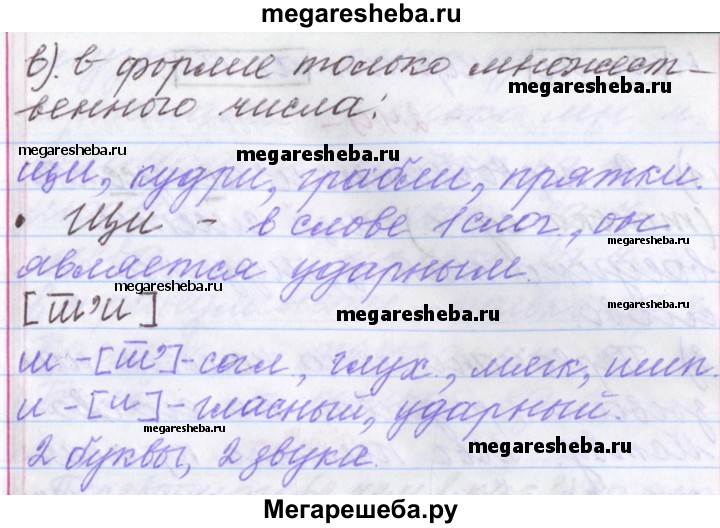 megaresheba.ru
в). в форме только множест-
megaresheba.ru
венного числа:
megaresheba.ru
megaresheba.ru
щи, кудри, грабли, прятки.
• Щи - в слове 1 слог, он
megaresheba.ru
является ударным.
megaresheba.ru
[ш̅'и]
megaresheba.ru
щ - [ш̅'] - согл., глух., мягк., шип.
megaresheba.ru
и - [и] - гласный, ударный.
2 буквы, 2 звука.
megaresheba.ru
Мегарешеба.ру